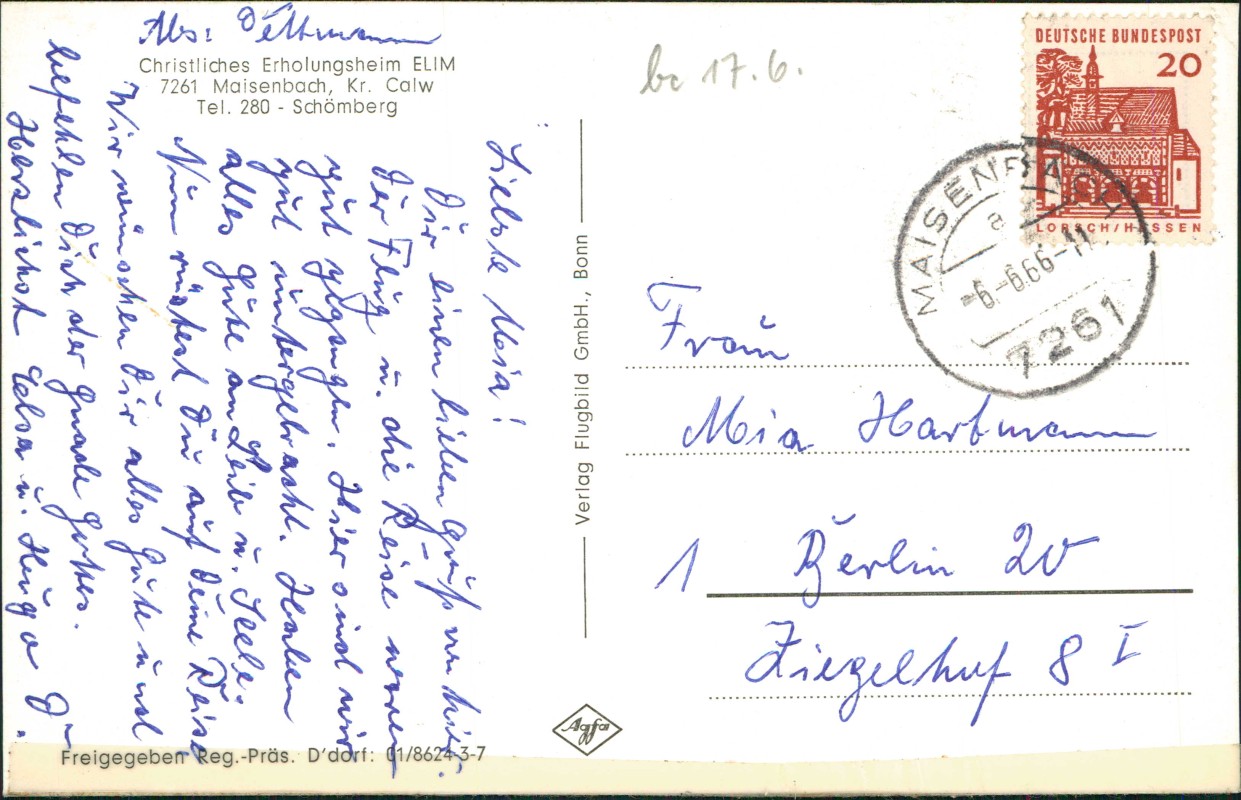 Abs: Dettmann
Christliches Erholungsheim ELIM
7261 Maisenbach, Kr. Calw
Tel. 280 - Schömberg
Liebste Mia!
Dir einen lieben Gruß von hier.
Der Flug u. die Reise waren
gut gegangen. Hier sind wir
gut untergebracht. Haben
alles Gute an Leib u. Seele.
Nun rüstest Du auf Deine Reise
Wir wünschen Dir alles Gute und
befehlen Dich der Gnade Gottes.
Herzlichst Elsa u. Hugo D.
Freigegeben Reg.-Präs. D'dorf: 01/8624-3-7
Verlag Flugbild GmbH., Bonn
Agfa
17.6.
DEUTSCHE BUNDESPOST
20
LORSCH/HESSEN
MAISENBACH
a
-6.-6.66-11
7261
Frau
Mia Hartmann
1 Berlin 20
Ziegelhof 8 I